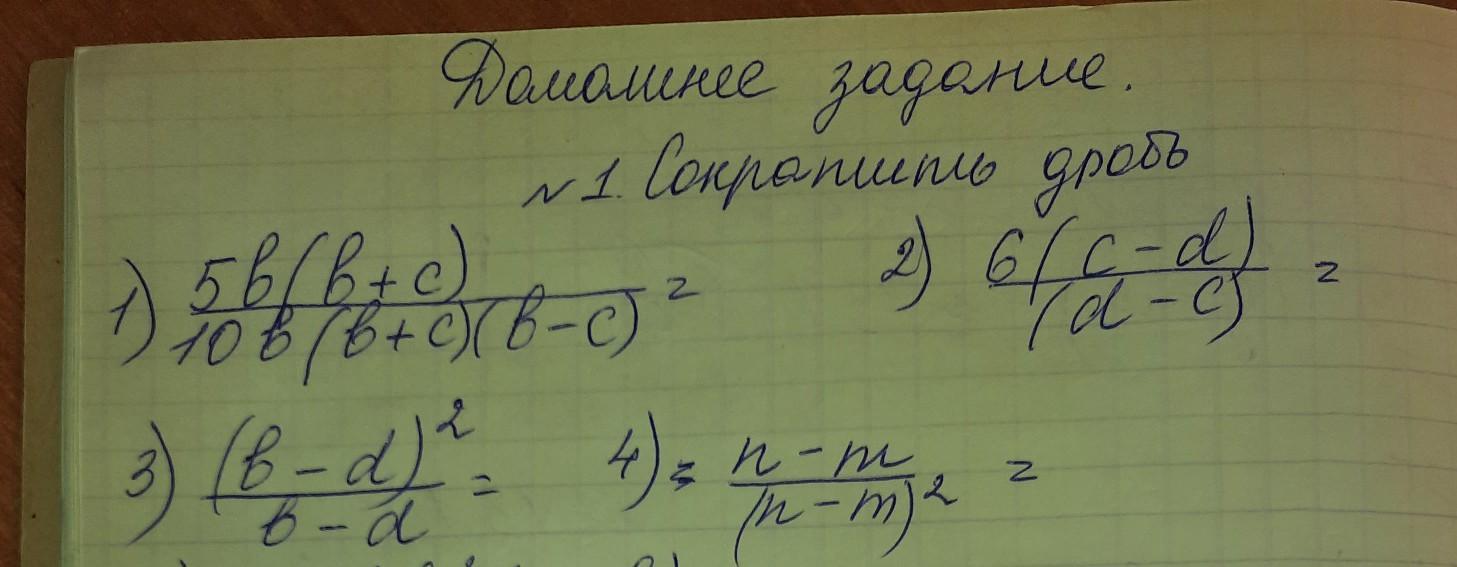 Домашнее задание.
№1. Сократить дробь
1) 5b(b+c) / 10b(b+c)(b-c) = 2) 6(c-d) / (d-c) =
3) (b-d)² / b-d = 4) = n-m / (n-m)² =